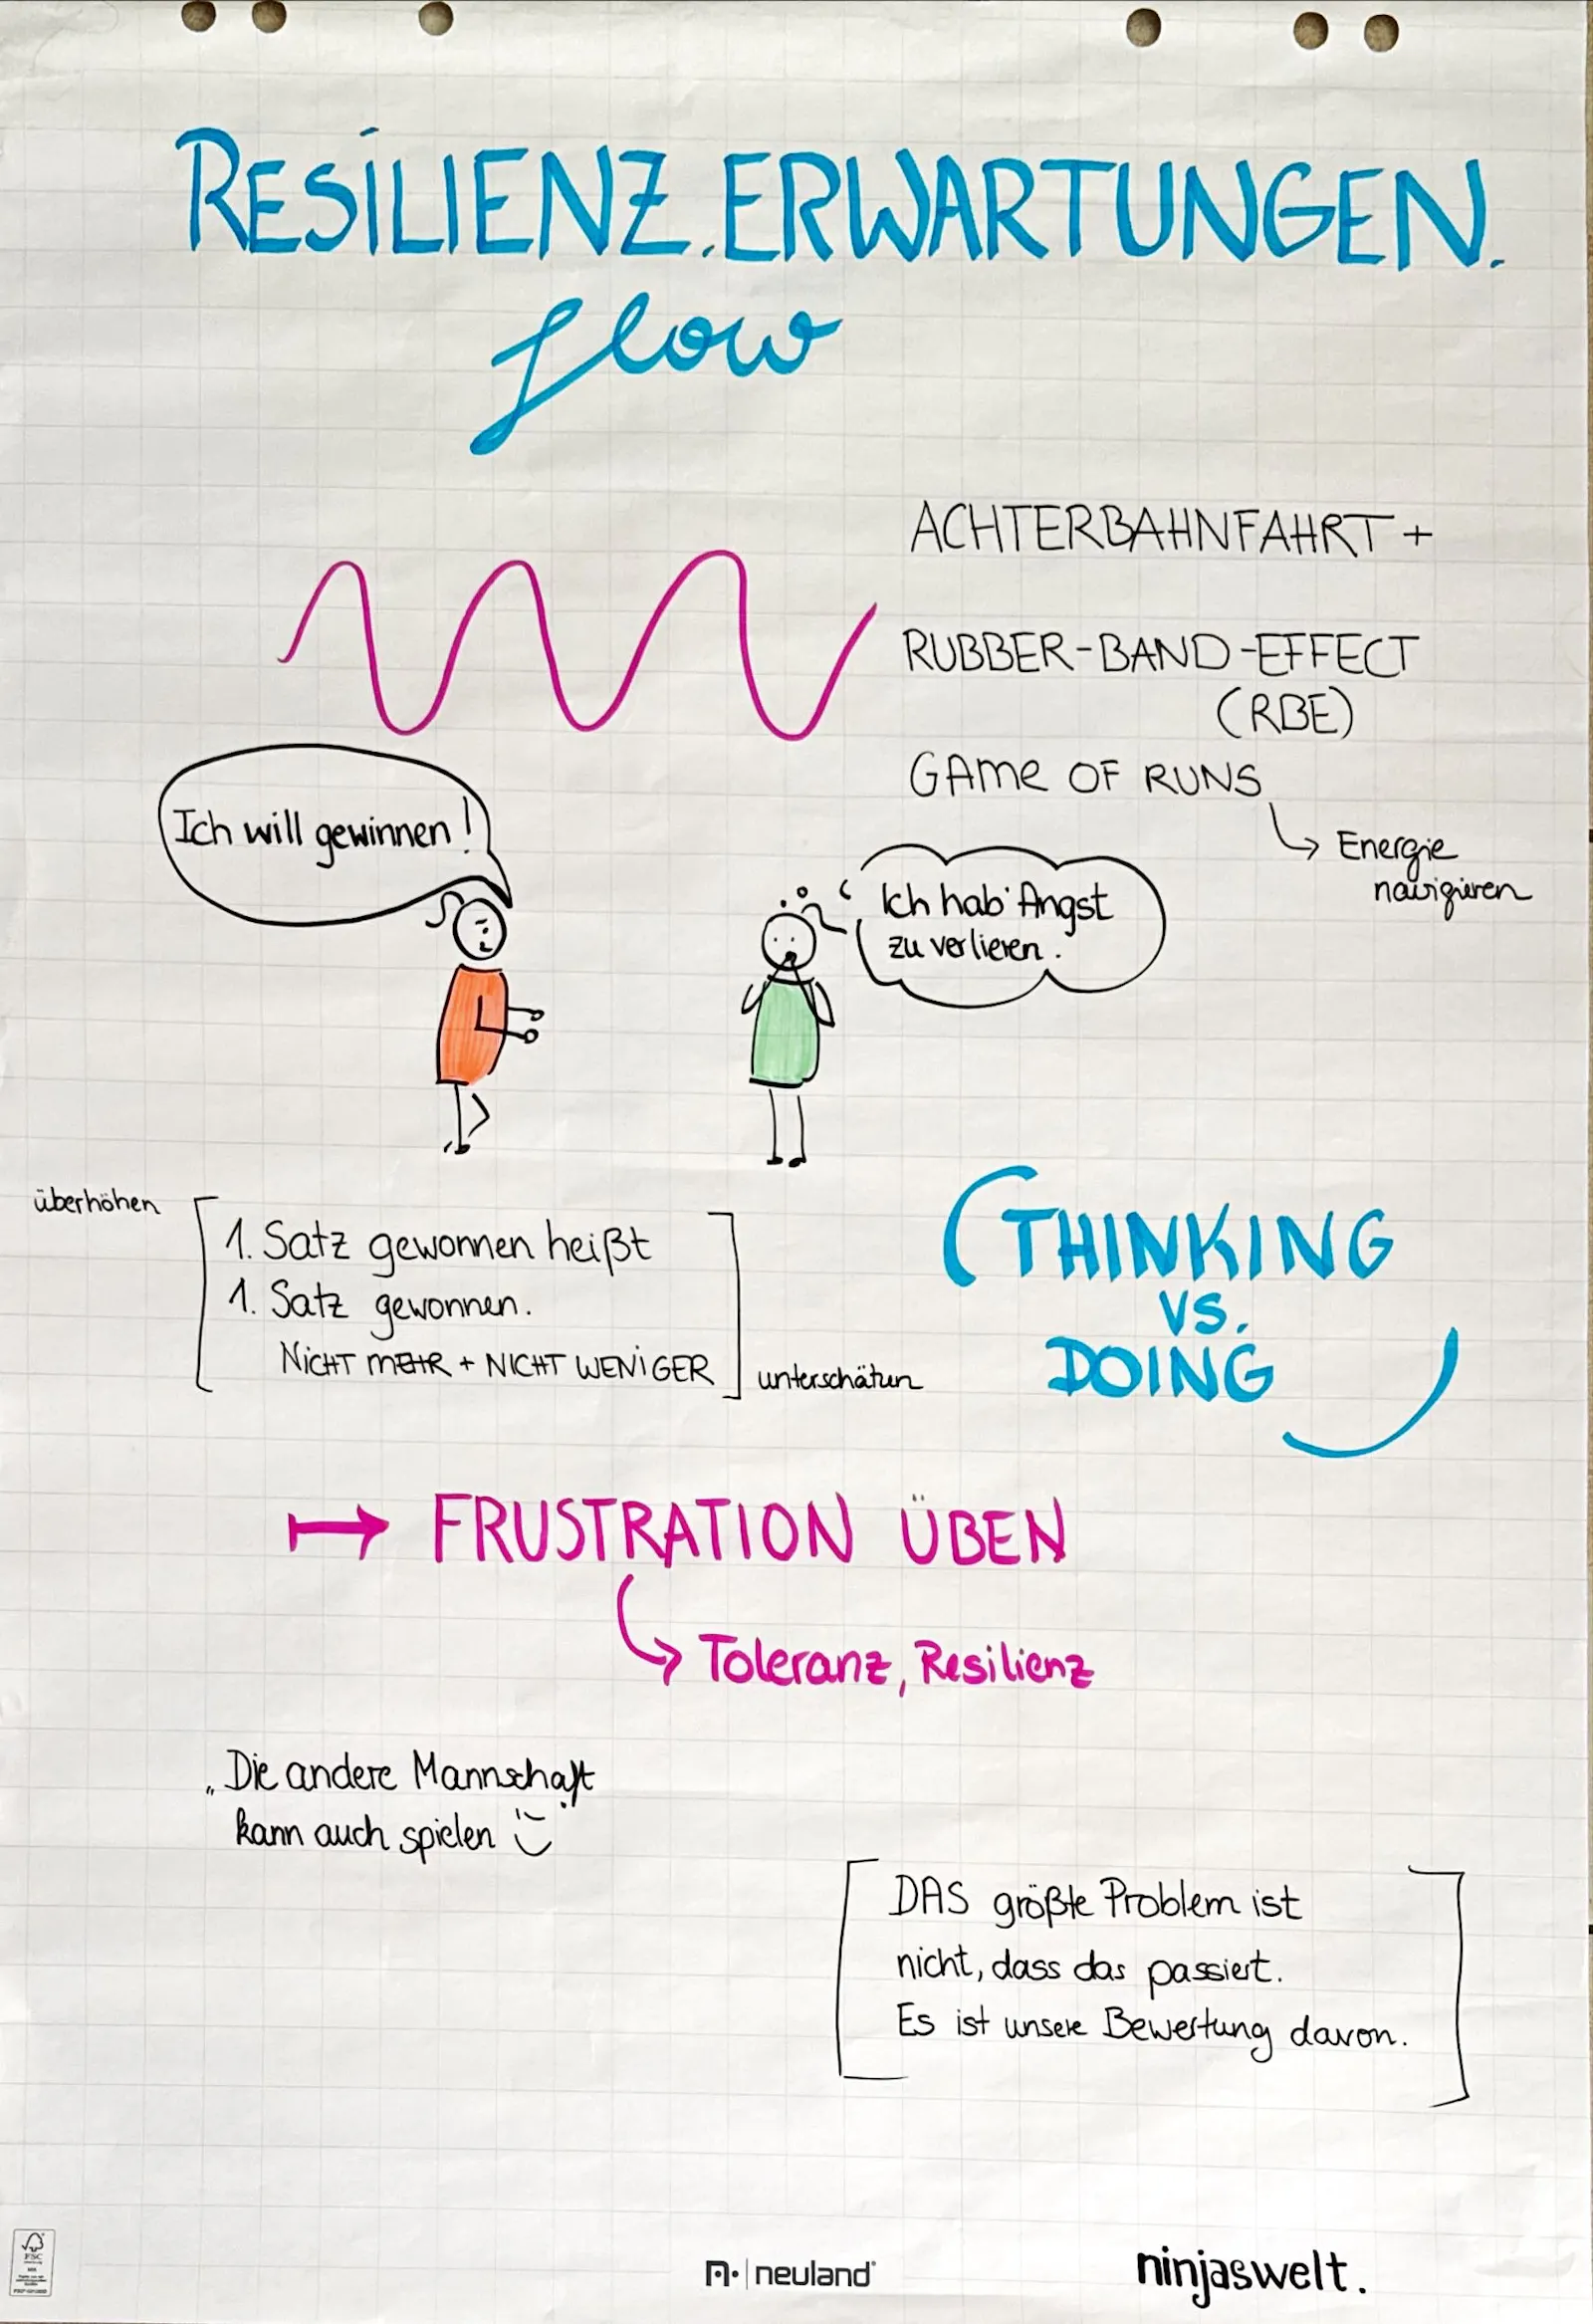 RESILIENZ. ERWARTUNGEN.
flow
ACHTERBAHNFAHRT +
RUBBER-BAND-EFFECT
(RBE)
GAME OF RUNS
Energie
navigieren
Ich will gewinnen!
Ich hab' Angst
zu verlieren.
überhöhen
1. Satz gewonnen heißt
1. Satz gewonnen.
NICHT MEHR + NICHT WENIGER
unterschätzen
(THINKING
VS.
DOING)
↦ FRUSTRATION ÜBEN
Toleranz, Resilienz
„Die andere Mannschaft
kann auch spielen
DAS größte Problem ist
nicht, dass das passiert.
Es ist unsere Bewertung davon.
FSC
neuland
ninjaswelt.